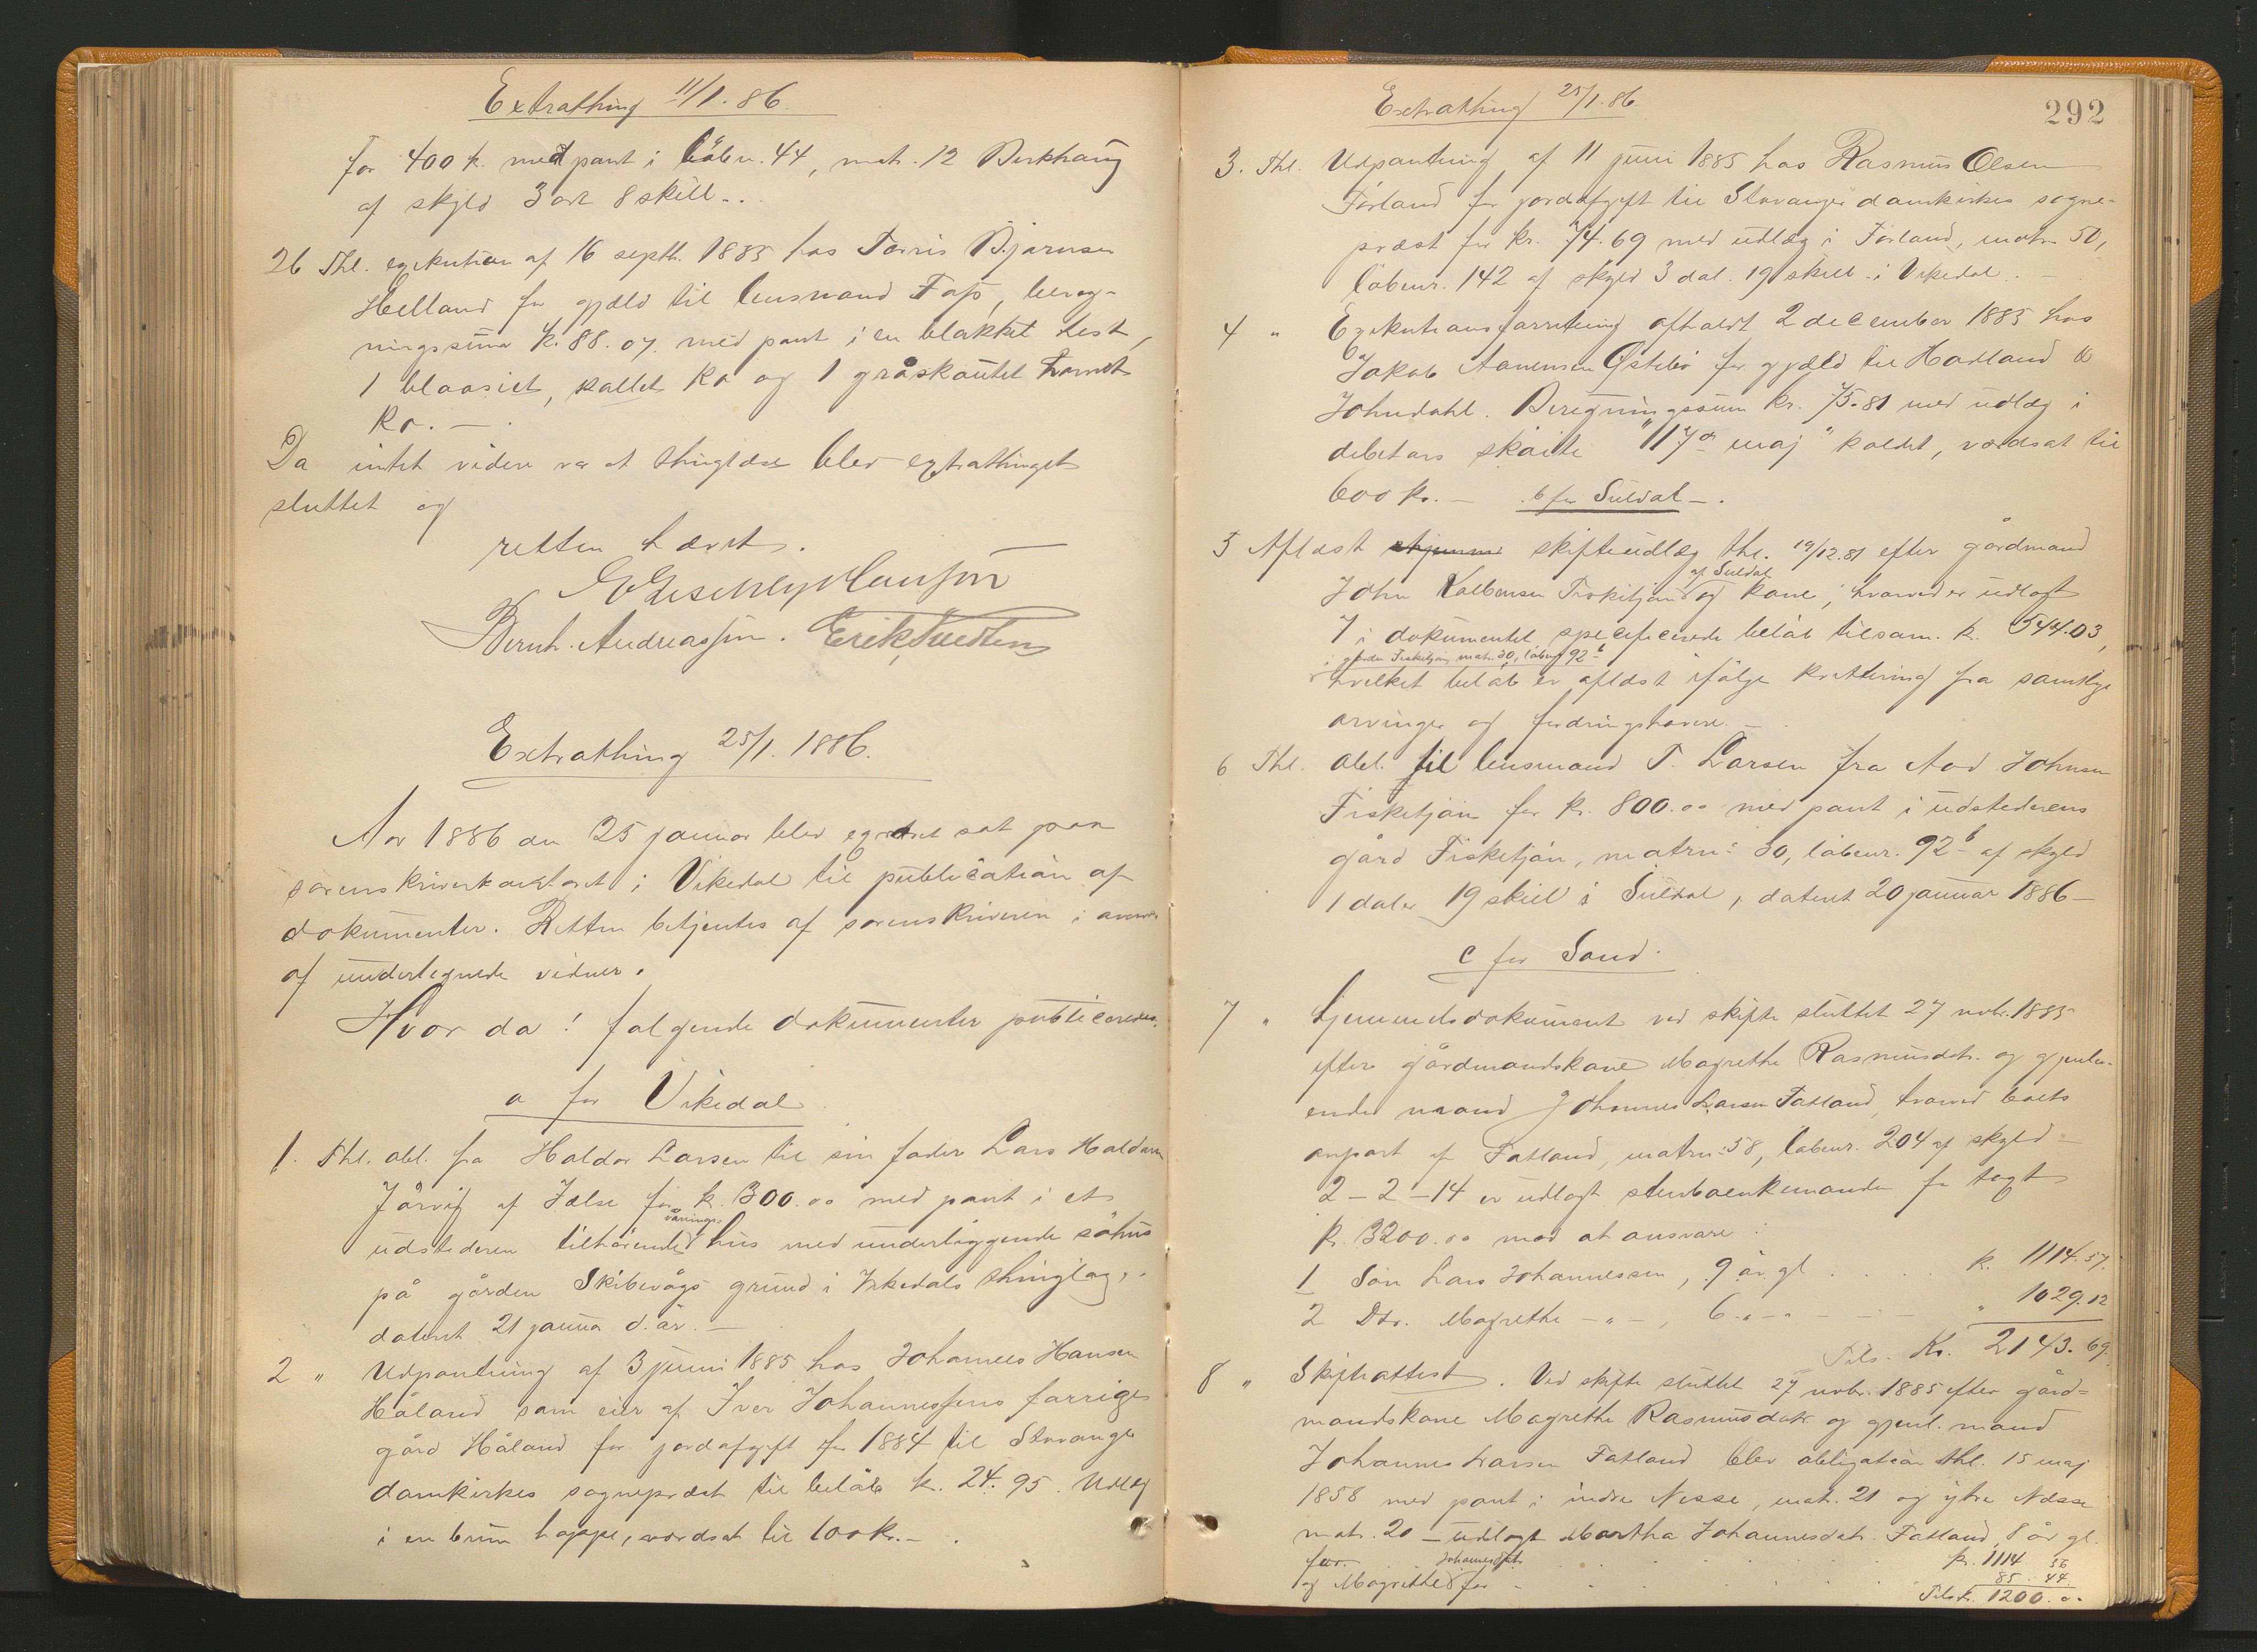 Extrathing 11/1. 86.
for 400 k. med pant i löbn. 44, matr. 12 Birkhaug
af skyld 3 ort 8 skill..
26 Thl. exekution af 16 septb. 1885 hos Torris Bjørnsen
Helland for gjæld til lensmand Fass, bereg-
ningssum k. 88.07. med pant i en blakket hest,
1 blaasiet, kollet ko og 1 gråskoutet hornet
ko. —
Da intet videre var at thinglæse blev extrathinget
sluttet og
retten hævet.
Bernh. Andreassen. Erik Tvedten
Extrathing 25/1. 1886.
Aar 1886 den 25 januar blev extraret sat paa
sorenskriverkontoret i Vikedal til publication af
dokumenter. Retten betjentes af sorenskriveren i nærvær
af undertegnede vidner.
Hvor da! følgende dokumenter publiceredes.
a for Vikedal
1. Thl. obl. fra Haldor Larsen til sin fader Lars Haldorsen
Jårvig af Jelse for k. 300.00 med pant i et
vånings
udstederen tilhörende hus med underliggende söhus
på gården Skibevågs grund i Vikedals thinglag,
dateret 21 januar d. år. —
2 " Udpantning af 3 juni 1885 hos Johannes Hansen
Håland som eier af Iver Johannessens forrige
gård Håland for jordafgift for 1884 til Stavanger
domkirkes sognepræst til beløb k. 24.95. Udlæg
i en brun hoppe, værdsat til 100 kr. —
Extrathing 25/1. 86
292
3. Thl. Udpantning af 11 juni 1885 hos Rasmus Olsen
Förland for jordafgift til Stavanger domkirkes sogne-
præst for kr. 74.69 med udlæg i Förland, matr. 50,
löbenr. 142 af skyld 3 dal. 19 skill. i Vikedal. —
4 " Exekutionsforretning afholdt 2 december 1885 hos
Jakob Aanensen Østebö for gjæld til Hadland &
Johndahl. Beregningssum kr. 75.81 med udlæg i
debitors skøite "17de maj" kaldet, værdsat til
600 kr. — b for Suldal —.
5 Aflæst skifteudlæg thl. 19/12.81 efter gårdmand
af Suldal
John Kolbensen Fisketjön og kone, hvorved er udlagt
7 i dokumentet specificerede beløb tilsam. k. 544.03,
i gården Fisketjön, matr. 30, löbenr 92b
hvilket beløb er aflæst ifølge kvittering fra samtlige
arvinger og fordringshavere. —
6 Thl. obl. til lensmand T. Larsen fra Aad Johnsen
Fisketjön for k. 800.00 med pant i udstederens
gård Fisketjön, matrn: 30, löbenr. 92b af skyld
1 daler 19 skill i Suldal, dateret 20 januar 1886 —
c for Sand.
7 " Hjemmelsdokument ved skifte sluttet 27 novbr. 1885
efter gårdmandskone Magrethe Rasmusdtr. og gjenlev-
ende mand Johannes Larsen Fatland, hvorved boets
anpart af Fatland, matrn: 58, löbenr. 204 af skyld
2 – 2 – 14 er udlagt stervboenkemanden for taxt
k. 3200.00 mod at ansvare:
1 Sön Lars Johannessen, 9 år gl . . . . k. 1114.57.
2 Dtr. Magrethe — " —, 6 " — " — " 1029.12
Tils. Kr. 2143.69.
8 " Skifteattest. Ved skifte sluttet 27 novbr. 1885 efter gård=
mandskone Magrethe Rasmusdatr og gjenl. mand
Johannes Larsen Fatland blev obligation thl. 15 maj
1858 med pant i indre Nesse, matr. 21 og ytre Nesse
matr. 20 — udlagt Martha Johannesdatr. Fatland, 8 år gl.
for . . . . k. 1114.56
Johannesdatr.
og Magrethe for . . . . 85.44
Tils k. 1200.00